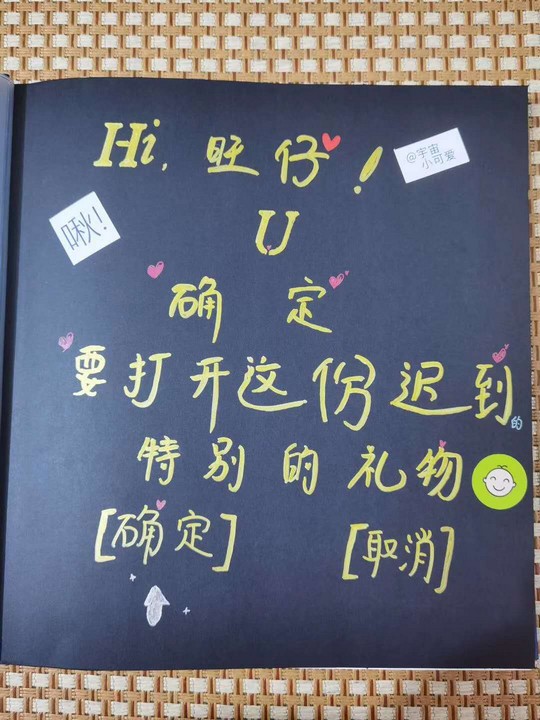 Hi, 旺仔!
@宇宙
小可爱
啾!
U
确 定
要打开这份迟到
的
特别的礼物
[确定] [取消]